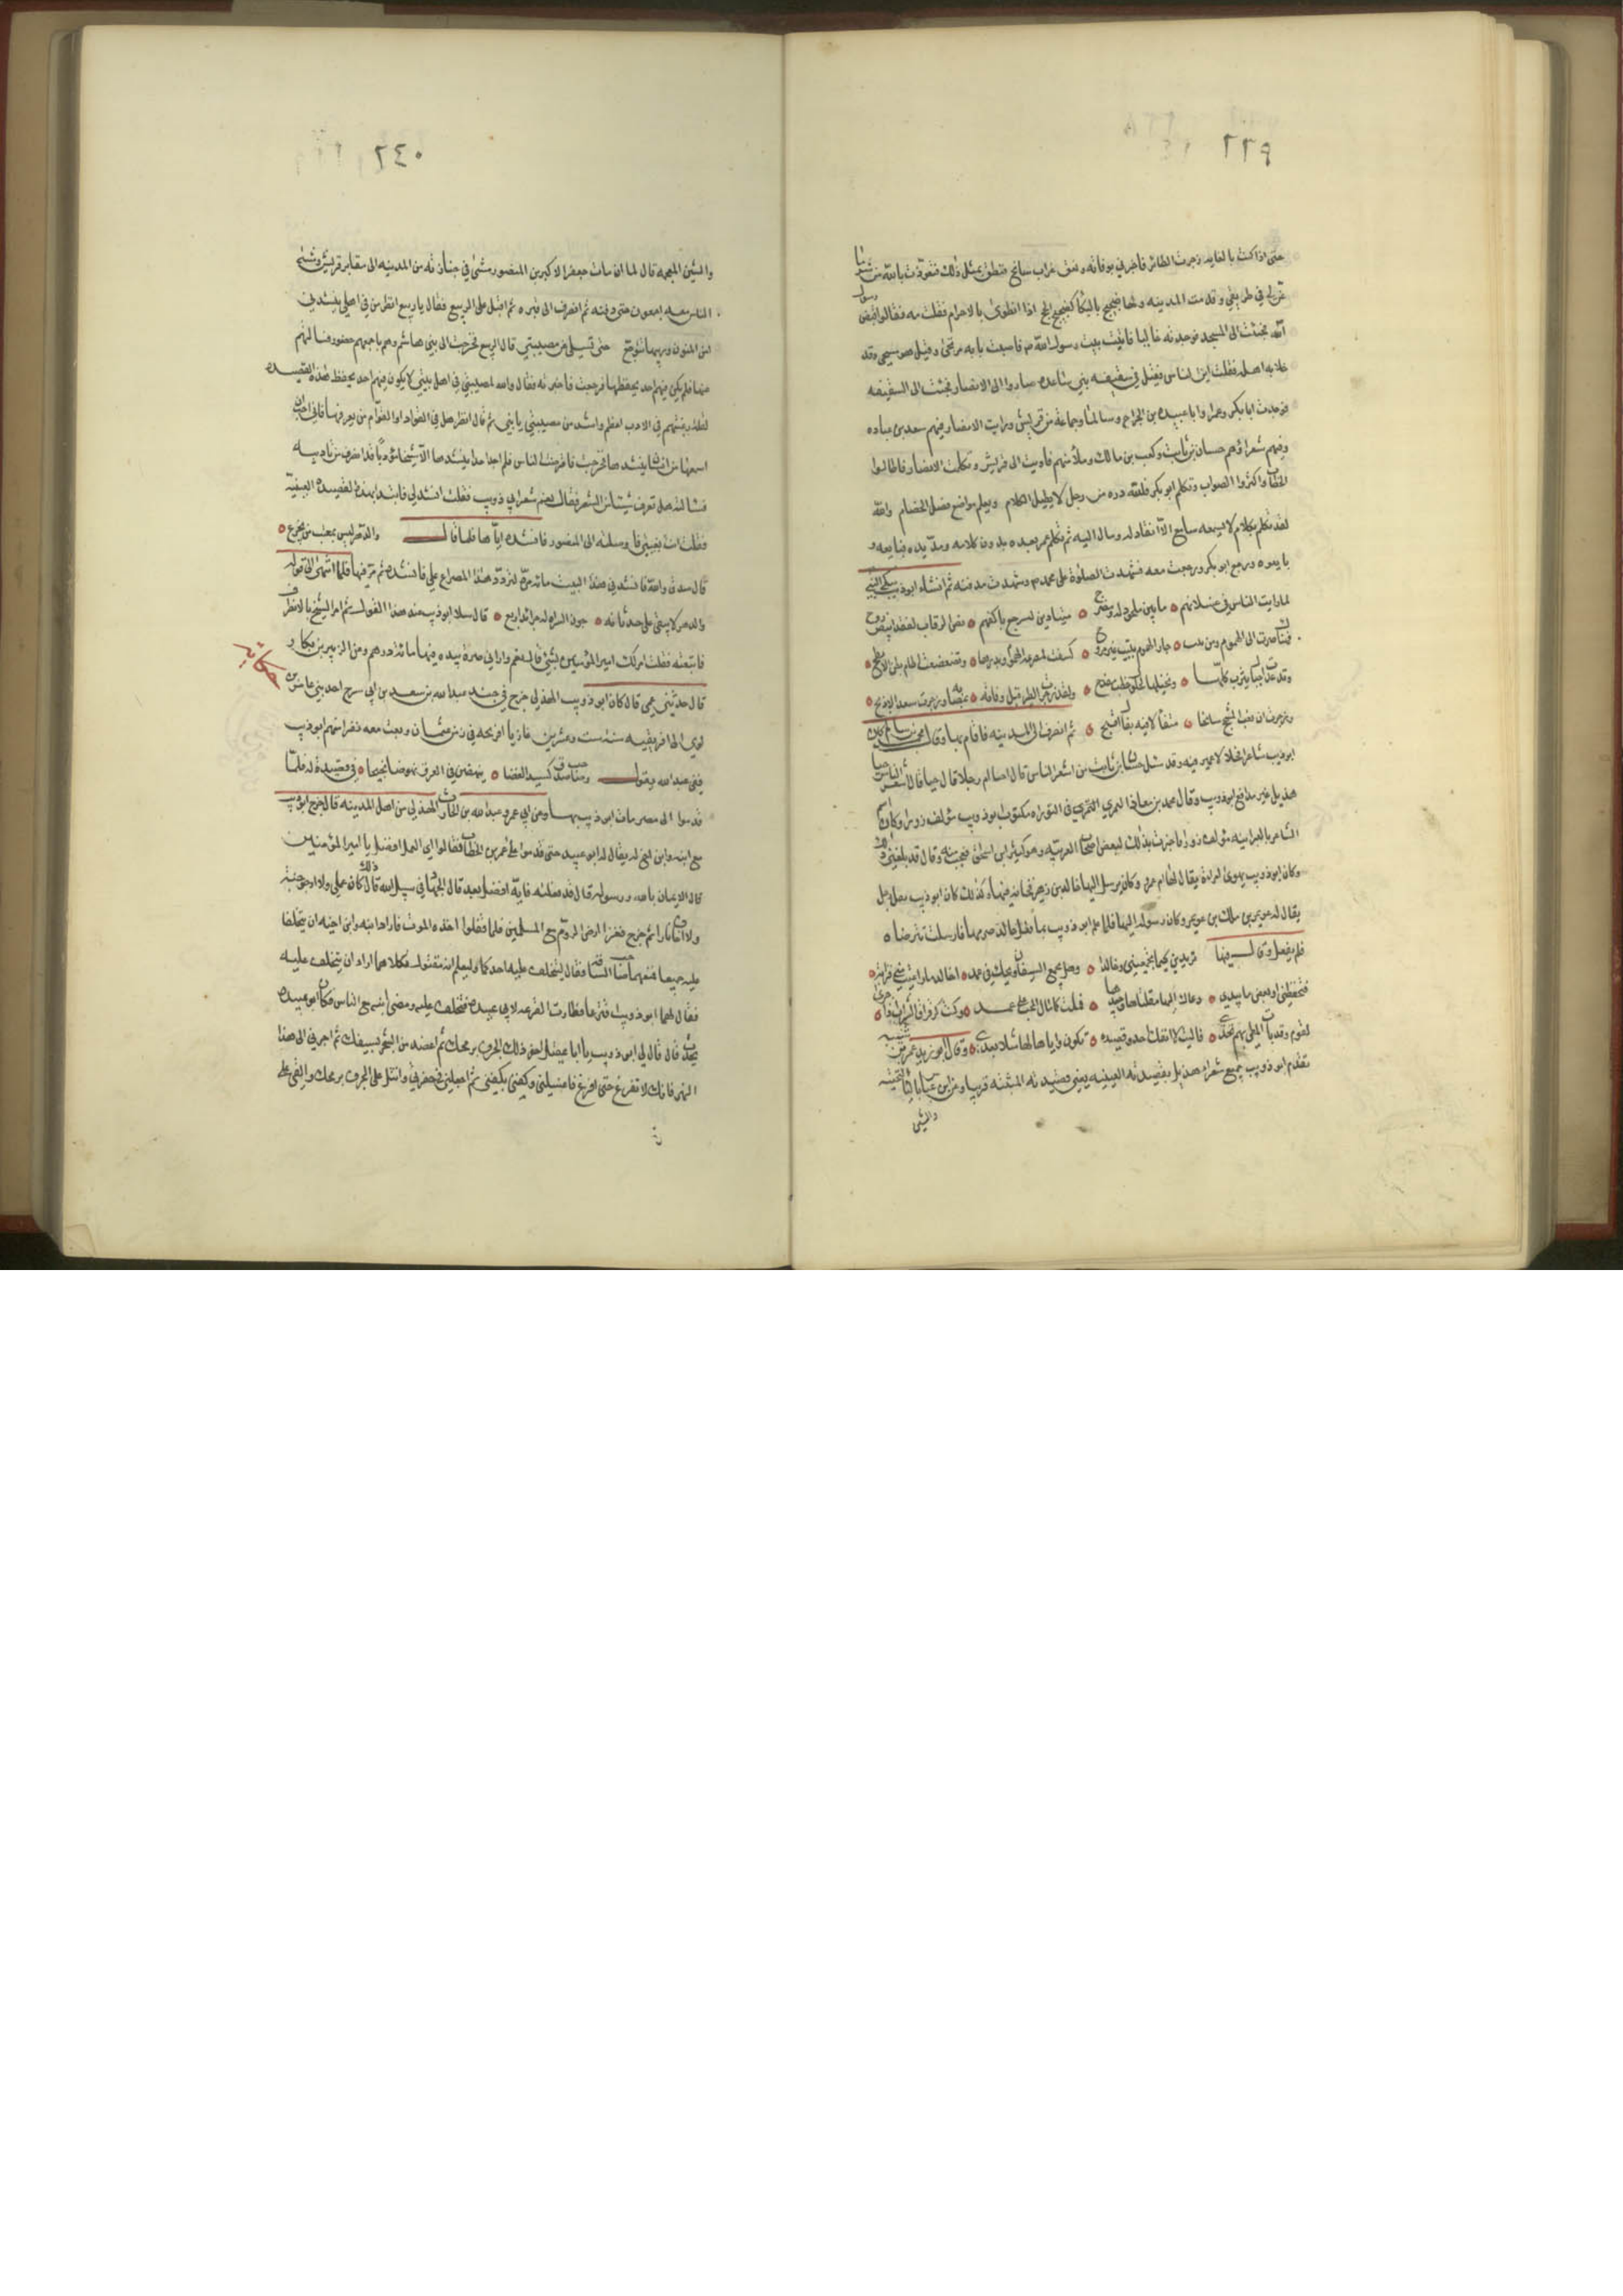 ٢٣٩
حتى اذا كنت بالغابه زجرت الطائر فاخبرني بوفاته ونعق غراب سانح فنطق بمثل ذلك فتعوذت بالله من شر ما
عن لي في طريقي وقدمت المدينه ولها ضجيج بالبكا كضجيج الحج اذا اهلوا بالاحرام فقلت مه فقالوا قبض رسول
الله فجئت الى المسجد فوجدته خاليا فاتيت بيت رسول الله ص فاصبت بابه مرتجى وقيل هو مسجى وقد
خلا به اهله فقلت اين الناس فقيل في سقيفه بني ساعده صاروا الى الانصار فجئت الى السقيفه
فوجدت ابا بكر وعمر وابا عبيده بن الجراح وسالما وجماعة من قريش ورايت الانصار فيهم سعد بن عباده
وفيهم شعراؤهم حسان بن ثابت وكعب بن مالك وملأ منهم فاويت الى قريش وتكلمت الانصار فاطالوا
الخطاب واكثروا الصواب وتكلم ابو بكر فلله دره من رجل لا يطيل الكلام ويعلم مواضع فصل الخصام والله
لقد تكلم بكلام لا يسمعه سامع الا انقاد له ومال اليه ثم تكلم عمر بعده بدون كلامه ومد يده فبايعه و
بايعوه ورجع ابو بكر ورجعت معه فشهدت الصلوة على محمد ص وشهدت مدفنه ثم انشاء ابوذيب يبكي النبي
لما رايت الناس في عسلانهم ما بين ملحود له ومضرح متبادرين لسرجع باكفهم نص الرقاب لفقد ابيض اروح
فهناك صرت الى الهموم ومن يبت جار الهموم يبيت غير مروح كسفت لمصرعه النجوم وبدرها وتضعضعت اطام بطن الابطح
وتدعدعت اجبال يثرب كلها ونخيلها لحلول خطب مفدح ولقد زجرت الطير قبل وفاته بمصابه وزجرت سعد الاذبح
وزجرت ان نعب المشحج سانحا متفألا فيه بفأل اقبح ثم انصرف الى المدينه فاقام بها وقال محمد بن سلام كان
ابوذيب شاعرا فحلا لا غميزه فيه وقد سئل حسان بن ثابت من اشعر الناس قال احيا ام رجلا قال حيا قال اشعر الناس حيا
هذيل غير مدافع ابوذويب وقال محمد بن معاذ المعمري في التوراه مكتوب ابوذويب مؤلف زورا وكان اسم
الشاعر بالعبرانيه مؤلف زورا فاخبرت بذلك لبعض اصحاب العربيه وهو كثير بن اسحق فعجب منه وقال قد بلغني ذلك
وكان ابوذويب يهوى امراة يقال لها ام عمرو وكان يرسل اليها خالد بن زهير فخانه فيها وكذلك كان ابوذويب فعل برجل
يقال له عويم بن مالك بن عويمر وكان رسوله اليها فلما علم ابوذويب بما فعل خالد صرمها فارسلت تترضاه
فلم يفعل وقال فيها تريدين كيما تجمعيني وخالدا وهل يجمع السيفان ويحك في غمد اخالد ما راعيت مني قرابة
فتحفظني او بعض ما تبدي دعاك اليها مقلتاها وجيدها فملت كما مال المحب على عمد وكنت كرقراق السراب اذا جرى
لقوم وقد بات المطي بهم تخدي فاليت لا انفك احدو قصيده تكون واياها لها مثلا بعدي وقال ابو زيد عمر بن شبه
تقدم ابوذويب جميع شعراء هذيل بقصيدته العينيه يعني قصيدته المثبته قريبا وعن ابن عياش بالتحتيه
والشين
٢٤٠
والشين المعجمه قال لما ان مات جعفر الاكبر بن المنصور مشى في جنازته من المدينه الى مقابر قريش ومشى
الناس معه اجمعون حتى دفنه ثم انصرف الى قبره ثم اقبل على الربيع فقال يا ربيع انظر من في اهلي ينشدني
امن المنون وريبها تتوجع حتى تسلى عن مصيبتي قال الربيع فخرجت الى بني هاشم وهم باجمعهم حضور فسالتهم
عنها فلم يكن فيهم احد يحفظها فرجعت فاخبرته فقال والله لمصيبتي في اهل بيتي لا يكون فيهم احد يحفظ هذه القصيده
لقلة رغبتهم في الادب اعظم واشد من مصيبتي بابني ثم قال انظر هل في القواد او العوام من يعرفها فاني احب ان
اسمعها من انسان ينشدها فخرجت فاعترضت الناس فلم اجد احدا ينشدها الا شيخا مؤدبا قد انصرف من تاديبه
فسالته هل تعرف شيئا من الشعر فقال نعم شعر ابي ذويب فقلت انشدني فابتدا بهذه القصيده العينيه
فقلت انت بغيتي فاوصلته الى المنصور فانشده اياها فلما قال والدهر ليس بمعتب من يجزع
قال صدق والله فانشدني هذا البيت مائة مرة لتردد هذا المصراع علي فانشده ثم مر فيها فلما انتهى الى قوله
والدهر لا يبقى على حدثانه جون السراه له جدائد اربع قال سلا ابوذيب عند هذا القول ثم امر الشيخ بالانصراف
فاتبعته فقلت امر لك امير المؤمنين بشئ قال نعم واراني صرة بيده فيها مائة درهم وعن الزبير بن بكار
حكاية
قال حدثني عمي قال كان ابوذويب الهذلي خرج في جند عبدالله بن سعد بن ابي سرح احد بني عامر بن
لوي الى افريقيه سنة ست وعشرين غازيا افرنجه في زمن عثمان وبعث معه نفرا منهم ابوذيب
ففي عبدالله يقول وصاحب صدق كسيد الغضا ينهض في الغزو نهضا نجيحا في قصيدة له فلما
قدموا الى مصر مات ابوذيب بها وعن ابي عمرو عبدالله بن الحارث الهذلي من اهل المدينه قال خرج ابوذيب
مع ابنه وابن اخ له يقال له ابو عبيد حتى قدموا على عمر بن الخطاب فقالوا اي العمل افضل يا امير المؤمنين
قال الايمان بالله ورسوله قال قد فعلته فايه افضل بعد قال الجهاد في سبيل الله قال ذلك كان عملي ولا ارجو جنة
ولا اخاف نارا ثم خرج فغزا ارض الروم مع المسلمين فلما قفلوا اخذه الموت فاراد ابنه وابن اخيه ان يتخلفا
عليه جميعا فمنعهما صاحب الساقه فقال ليتخلف عليه احدكما وليعلم انه مقتول فكلاهما اراد ان يتخلف عليه
فقال لهما ابوذويب اقترعا فطارت القرعه لابي عبيده فتخلف عليه ومضى ابنه مع الناس فكان ابو عبيده
يحدث قال قال لي ابوذويب يا ابا عبيد احفر ذلك الجرف برمحك ثم اعضد من الشجر بسيفك ثم اجررني الى هذا
النهر فانك لا تفرغ حتى افرغ فاغسلني وكفني بكفني ثم اجعلني في حفرتي وانثل على الجرف برمحك والق علي